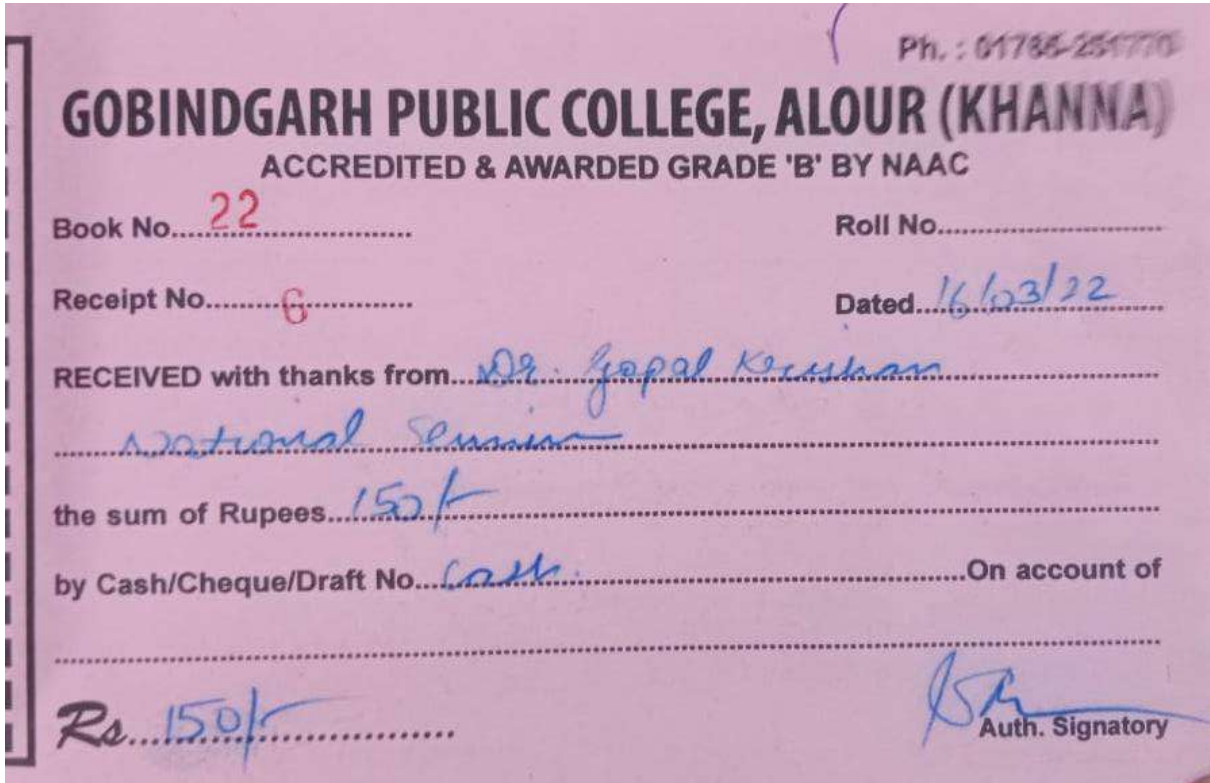 Ph. : 01765-251770
GOBINDGARH PUBLIC COLLEGE, ALOUR (KHANNA)
ACCREDITED & AWARDED GRADE 'B' BY NAAC
Book No. 22 Roll No.
Receipt No. 6 Dated 16/03/22
RECEIVED with thanks from Dr. Gopal Krishan
National
the sum of Rupees 150/-
by Cash/Cheque/Draft No. Cash. On account of
Rs. 150/-
Auth. Signatory